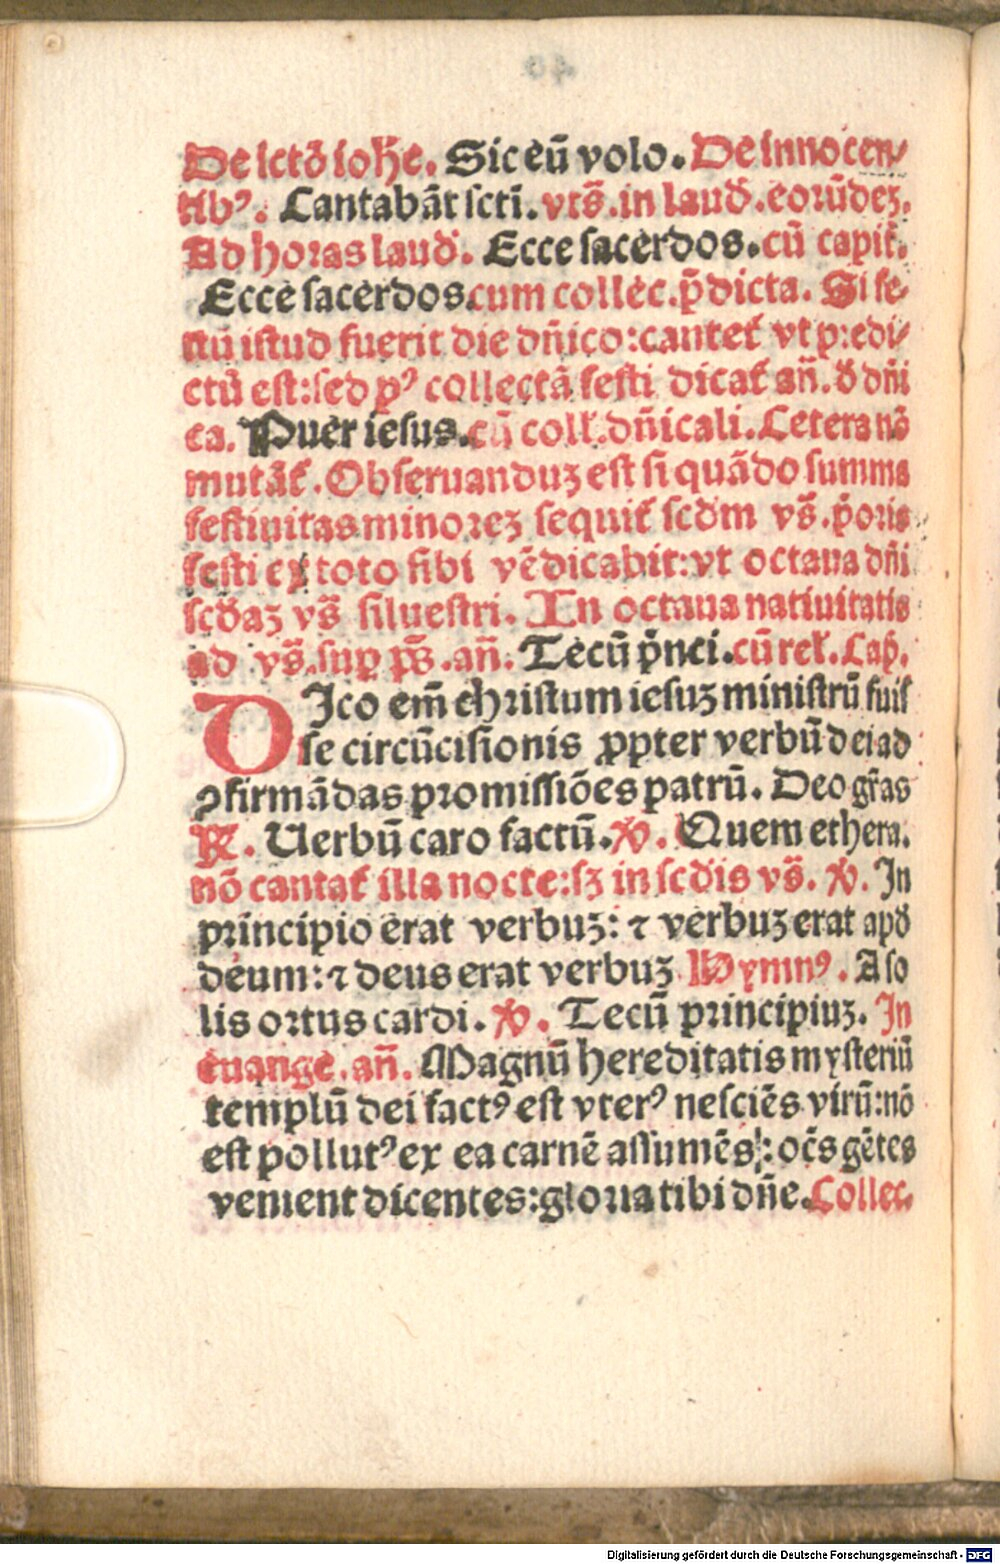 De sctō ioh̄e. Sic eū volo. De innocen/
tibꝰ. Cantabāt scti. vrs̄. in laud̄. eorūdeꝫ.
Ad horas laud̄. Ecce sacerdos. cū capit̄.
Ecce sacerdos. cum collec. p̄dicta. Si fe/
stū istud fuerit die dn̄ico: cantet̄ vt p̄edi/
ctū est: sed pꝰ collectā festi dicat̄ an̄. d̄ dn̄i
ca. Puer iesus. cū coll̄. dn̄icali. Cetera nō
mutāt̄. Obseruanduꝫ est si quādo summa
festiuitas minoreꝫ sequit̄ scd̄m vs̄. p̄oris
festi ex toto sibi vēdicabit: vt octaua dn̄i
scd̄aꝫ vs̄ siluestri. In octaua natiuitatis
ad vs̄. suꝑ ps̄. an̄. Tecū p̄nci. cū rel̄. Cap̄.
DIco em̄ christum iesuꝫ ministrū fuis
se circūcisionis ꝓpter verbū dei ad
ꝯfirmādas promissiōes patrū. Deo gr̄as
℟. Uerbū caro factū. ℣. Quem ethera.
nō cantat̄ illa nocte: sꝫ in scd̄is vs̄. ℣. In
principio erat verbuꝫ: ⁊ verbuꝫ erat apd̄
deum: ⁊ deus erat verbuꝫ Hymnꝰ. A so
lis ortus cardi. ℣. Tecū principiuꝫ. In
euange. an̄. Magnū hereditatis mysteriū
templū dei factꝰ est vterꝰ nesciēs virū: nō
est pollutꝰ ex ea carnē assumēs: oēs gētes
venient dicentes: gloria tibi dn̄e. Collec.
Digitalisierung gefördert durch die Deutsche Forschungsgemeinschaft - DFG